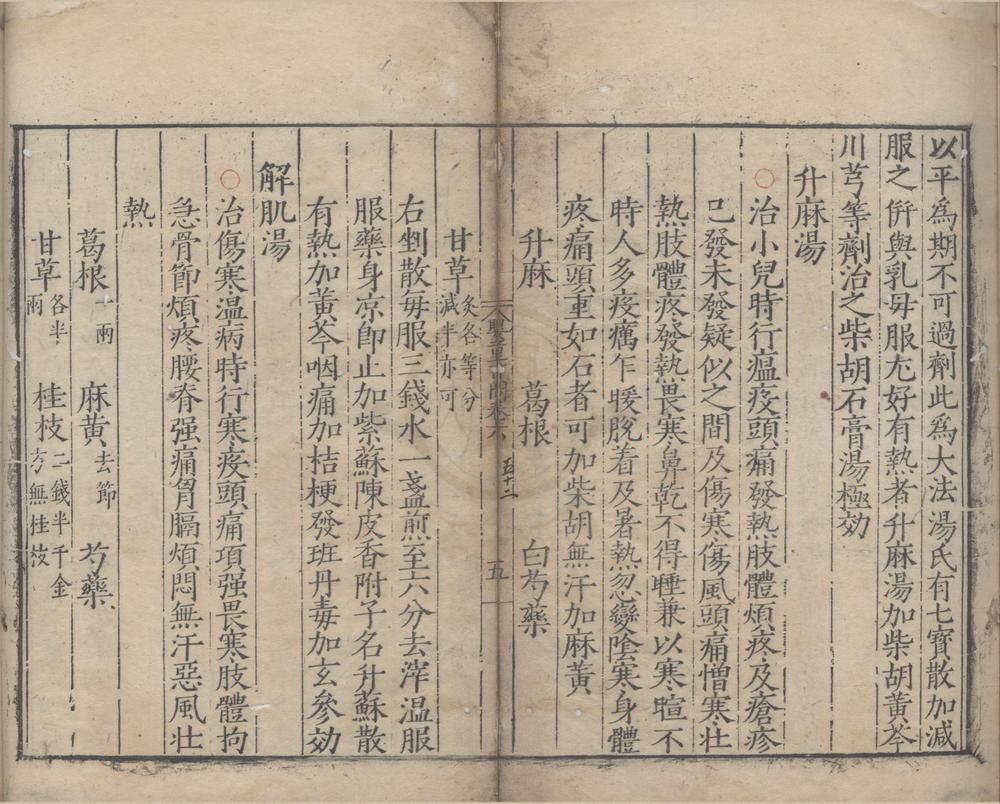 以平爲期不可過劑此爲大法湯氏有七寳散加減
服之併與乳母服尤好有熱者升麻湯加柴胡黃芩
川芎等劑治之柴胡石膏湯極効
升麻湯
○治小兒時行瘟疫頭痛發熱肢體煩疼及瘡疹
已發未發疑似之間及傷寒傷風頭痛憎寒壮
熱肢體疼發熱畏寒鼻乾不得睡兼以寒暄不
時人多疫癘乍暖脫着及暑熱忽變陰寒身體
疼痛頭重如石者可加柴胡無汗加麻黃
升麻 葛根 白芍藥
卷六 五
甘草炙各等分減半亦可
右剉散每服三錢水一盞煎至六分去滓温服
服藥身凉卽止加紫蘇陳皮香附子名升蘇散
有熱加黃芩咽痛加桔梗發班丹毒加玄參効
解肌湯
○治傷寒温病時行寒疫頭痛項强畏寒肢體拘
急骨節煩疼腰脊强痛胷膈煩悶無汗惡風壮
熱
葛根一兩 麻黃去節 芍藥
甘草各半兩 桂枝二錢半千金方無桂枝